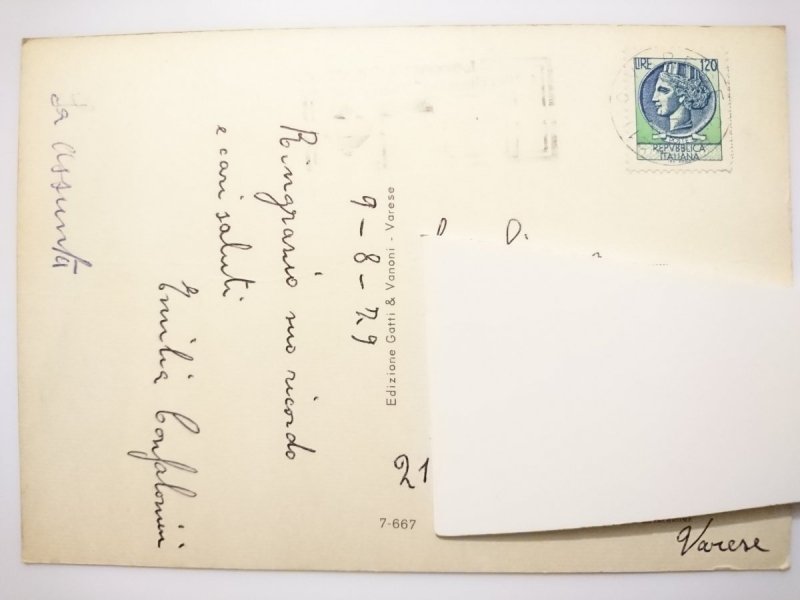 9-8-79
Ringrazio suo ricordo
e cari saluti
Emilia Confalonieri
Assunta
Edizione Gatti & Vanoni - Varese
7-667
LIRE 120
REPVBBLICA
ITALIANA
21
Varese